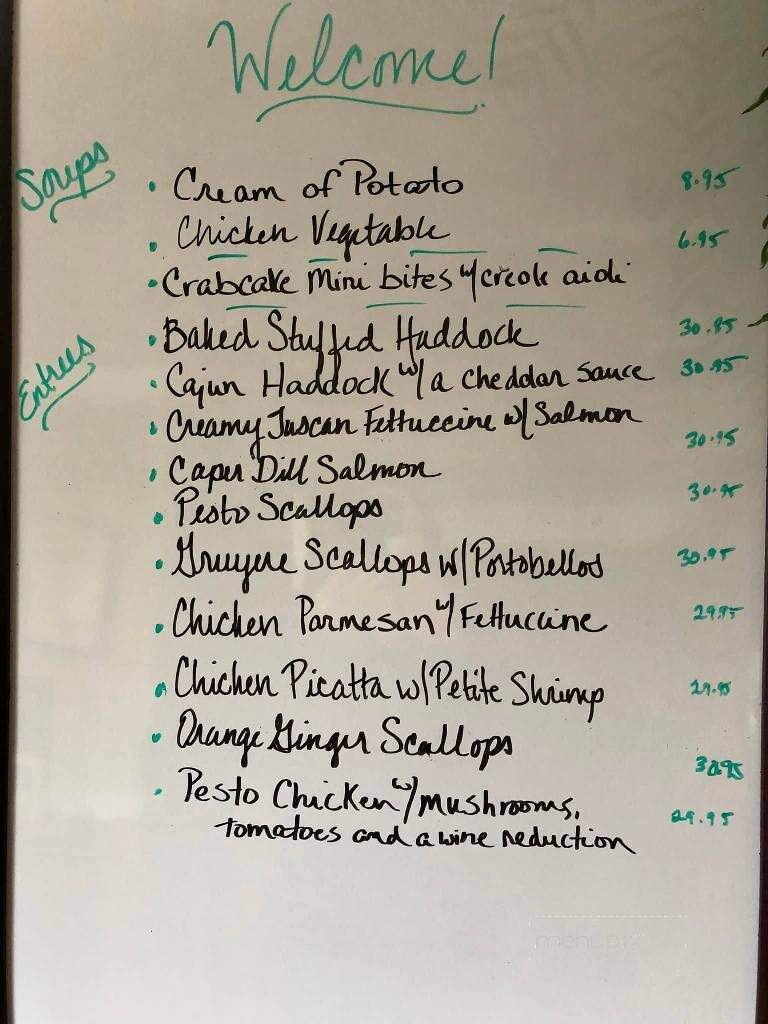 Welcome!
Soups
• Cream of Potato 8.95
• Chicken Vegetable 6.95
• Crabcake Mini bites w/creole aioli
Entrees
• Baked Stuffed Haddock 30.95
• Cajun Haddock w/a cheddar sauce 30.95
• Creamy Tuscan Fettuccine w/Salmon 30.95
• Caper Dill Salmon
• Pesto Scallops 30.95
• Gruyere Scallops w/Portobellos 30.95
• Chicken Parmesan w/Fettuccine 29.95
• Chicken Picatta w/Petite Shrimp 29.95
• Orange Ginger Scallops 30.95
• Pesto Chicken w/mushrooms, 29.95
tomatoes and a wine reduction